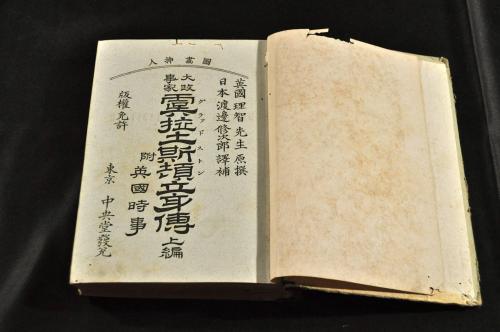 圖畵挿入
英國 理智 先生 原撰
日本 渡邊修次郎 譯補
大政事家
虞拉土斯頓立身傳 上編
グラッドストン
附 英國時事
版權免許
東京 中央堂發兌